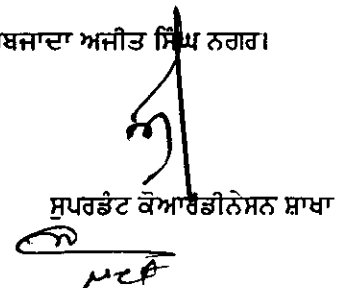 ਬਜਾਦਾ ਅਜੀਤ ਸਿੰਘ ਨਗਰ।
ਸੁਪਰਡੰਟ ਕੋਆਰਡੀਨੇਸਨ ਸ਼ਾਖਾ